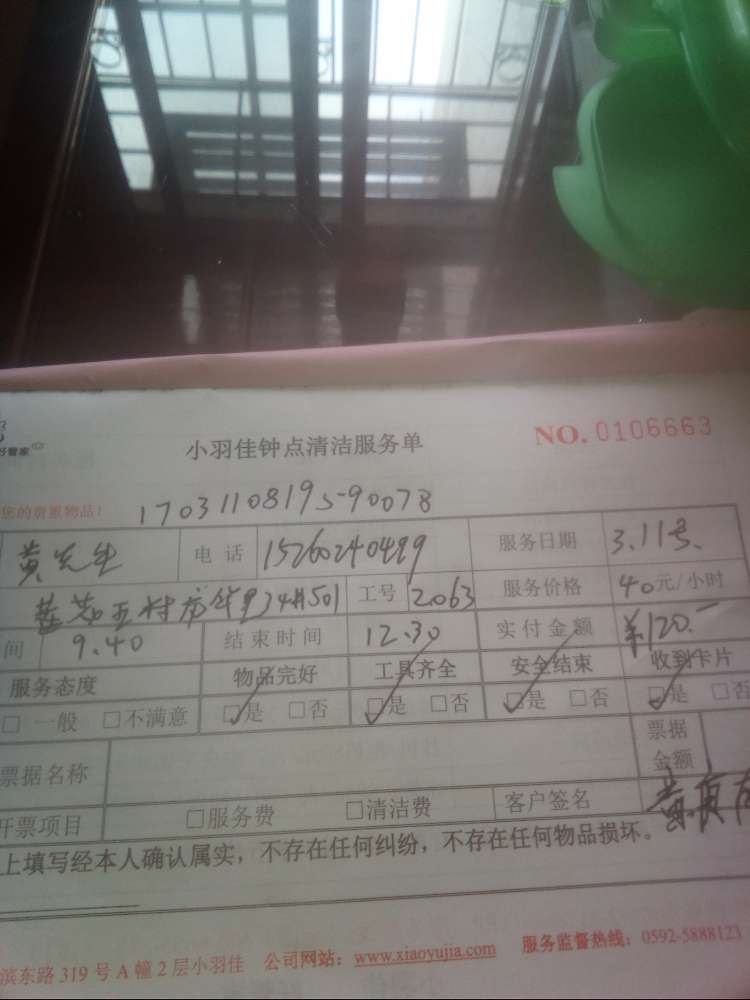 好管家
小羽佳钟点清洁服务单
NO. 0106663
您的贵重物品!
17031108195-90078
黄先生 电话 15260240499 服务日期 3.11号.
莲花五村 34#501 工号 2063 服务价格 40元/小时
间 9.40 结束时间 12.30 实付金额 ¥120.-
服务态度 物品完好 工具齐全 安全结束 收到卡片
□ 一般 □不满意 ☑是 □否 ☑是 □否 ☑是 □否 ☑是 □否
票据名称 票据金额
开票项目 □服务费 □清洁费 客户签名 黄
上填写经本人确认属实，不存在任何纠纷，不存在任何物品损坏。
滨东路319号A幢2层小羽佳 公司网站：www.xiaoyujia.com 服务监督热线：0592-5888121